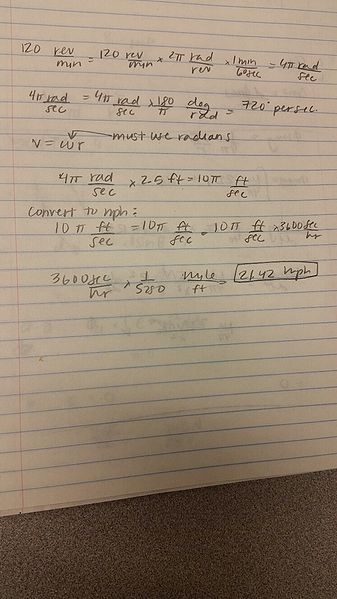 120 rev/min = 120 rev/min × 2π rad/rev × 1 min/60sec = 4π rad/sec
4π rad/sec = 4π rad/sec × 180/π deg/rad = 720° per sec.
must use radians
V = ωr
4π rad/sec × 2.5 ft = 10π ft/sec
convert to mph:
10π ft/sec = 10π ft/sec = 10π ft/sec × 3600 sec/hr
3600 sec/hr × 1/5280 mile/ft = 21.42 mph